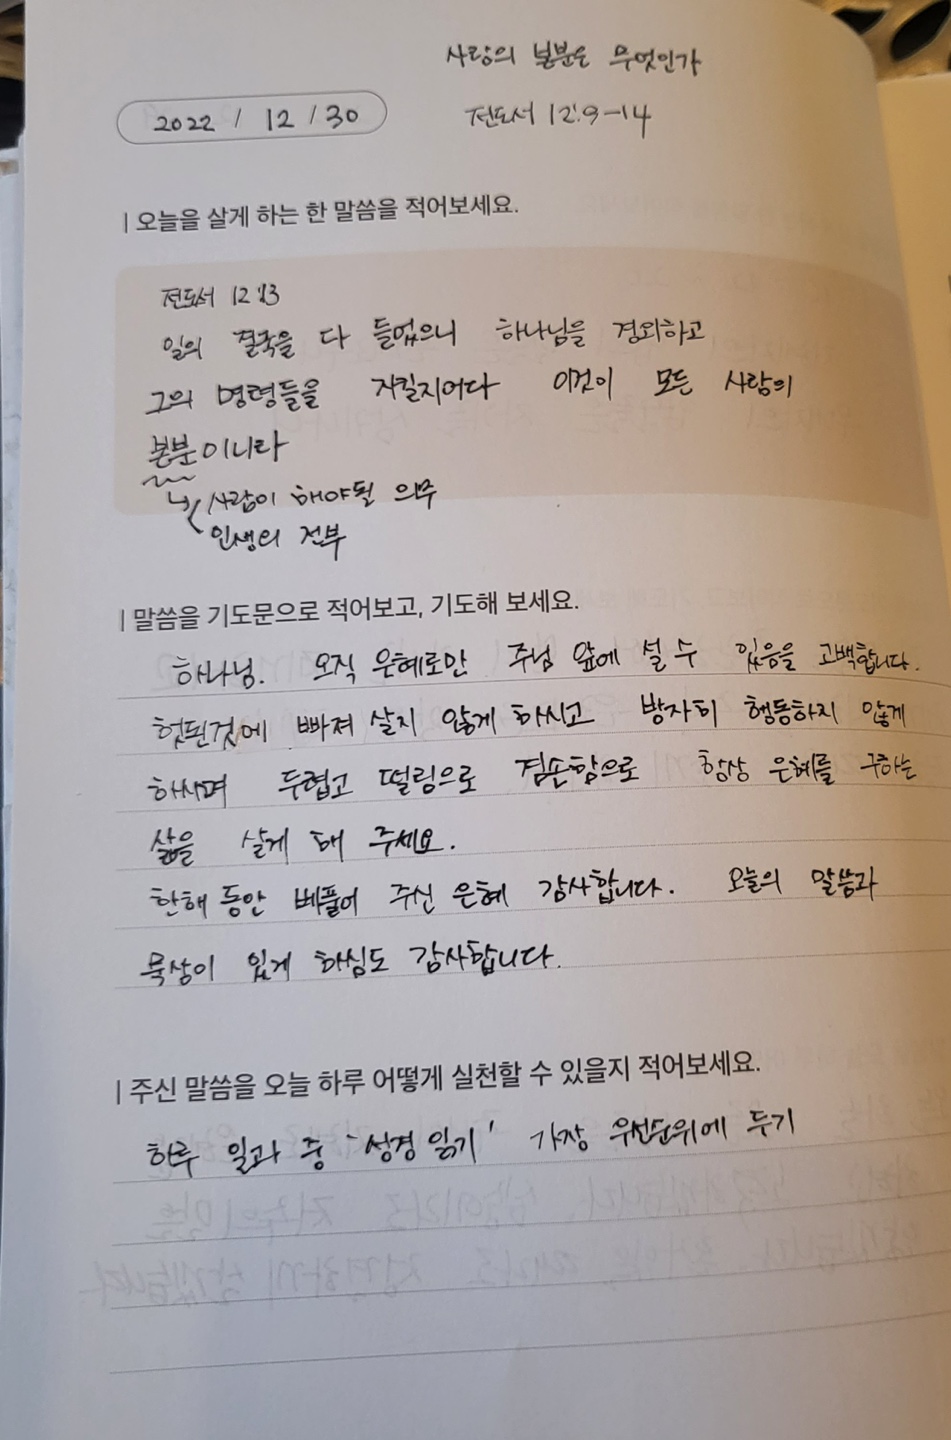 사람의 본분은 무엇인가
2022 / 12 / 30
전도서 12:9-14
| 오늘을 살게 하는 한 말씀을 적어보세요.
전도서 12:13
일의 결국을 다 들었으니 하나님을 경외하고
그의 명령들을 지킬지어다 이것이 모든 사람의
본분이니라
↳ 사람이 해야될 의무
인생의 전부
| 말씀을 기도문으로 적어보고, 기도해 보세요.
하나님. 오직 은혜로만 주님 앞에 설 수 있음을 고백합니다.
헛된것에 빠져 살지 않게 하시고 방자히 행동하지 않게
하시며 두렵고 떨림으로 겸손함으로 항상 은혜를 구하는
삶을 살게 해 주세요.
한해 동안 베풀어 주신 은혜 감사합니다. 오늘의 말씀과
묵상이 있게 하심도 감사합니다.
| 주신 말씀을 오늘 하루 어떻게 실천할 수 있을지 적어보세요.
하루 일과 중 '성경 읽기' 가장 우선순위에 두기